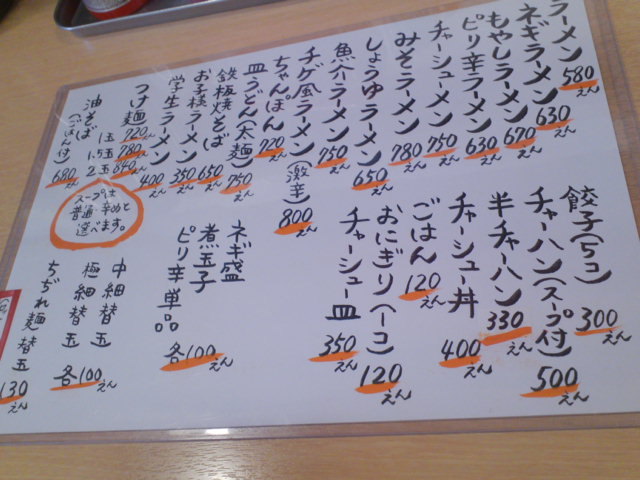 ラーメン 580えん
ネギラーメン 630えん
もやしラーメン 670えん
ピリ辛ラーメン 630えん
チャーシューメン 750えん
みそラーメン 780えん
しょうゆラーメン 650えん
魚介ラーメン 750えん
チゲ風ラーメン(激辛) 800えん
ちゃんぽん 720えん
皿うどん(太麺) 750えん
鉄板焼そば 650えん
お子様ラーメン 350えん
学生ラーメン 400えん
つけ麺
1玉 720えん
1.5玉 780えん
2玉
油そば(ごはん付) 680えん
スープは
普通・辛めと
選べます。
餃子(5コ) 300えん
チャーハン(スープ付) 500えん
半チャーハン 330えん
チャーシュー丼 400えん
ごはん 120えん
おにぎり(一コ) 120えん
チャーシュー皿 350えん
ネギ盛
煮玉子
ピリ辛単品
各100えん
中細替玉
極細替玉
各100えん
ちぢれ麺替玉 130えん